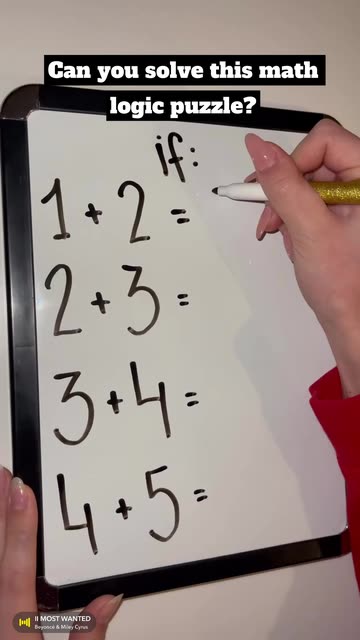 Can you solve this math
logic puzzle?
if:
1 + 2 =
2 + 3 =
3 + 4 =
4 + 5 =
II MOST WANTED
Beyoncé & Miley Cyrus